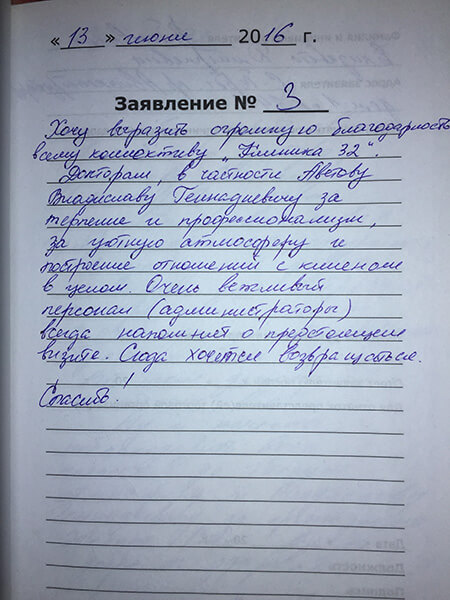 « 13 » июня 2016 г.
Заявление № 3
Хочу выразить огромную благодарность
всему коллективу „Клиника 32".
Докторам, в частности Аветову
Владиславу Геннадиевичу за
терпение и профессионализм,
за уютную атмосферу и
построение отношений с клиентом
в целом. Очень вежливый
персонал (администраторы)
всегда напомнят о предстоящем
визите. Сюда хочется возвращаться.
Спасибо!